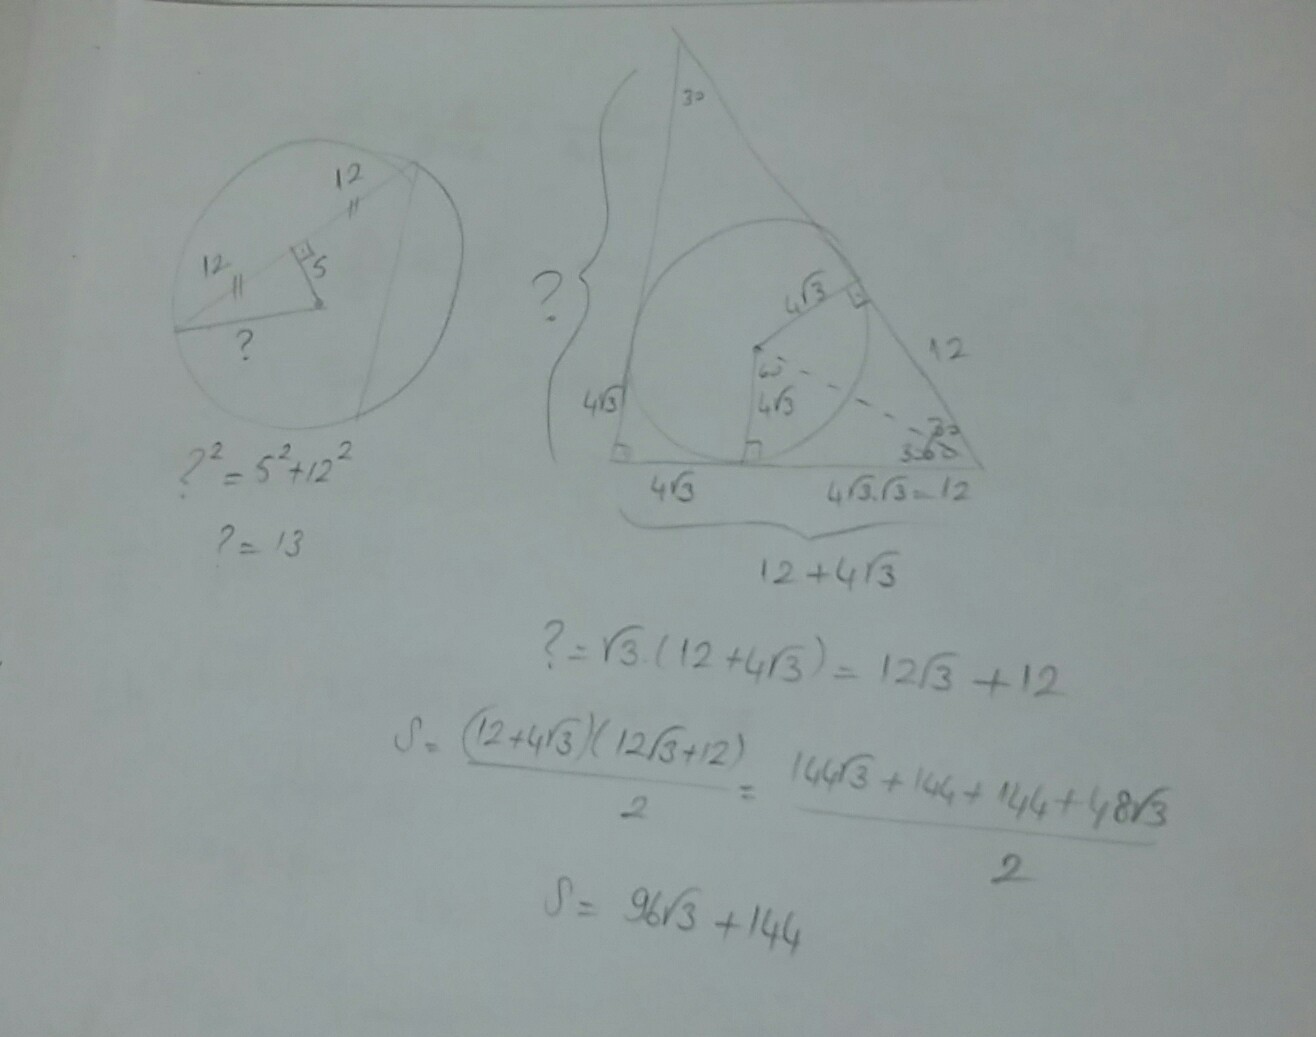 12
12
5
?
?² = 5² + 12²
? = 13
30
?
4√3
12
60
4√3
4√3
30
4√3
4√3.√3 = 12
12 + 4√3
? = √3.(12 + 4√3) = 12√3 + 12
S = (12+4√3)(12√3+12) / 2 = 144√3 + 144 + 144 + 48√3 / 2
S = 96√3 + 144